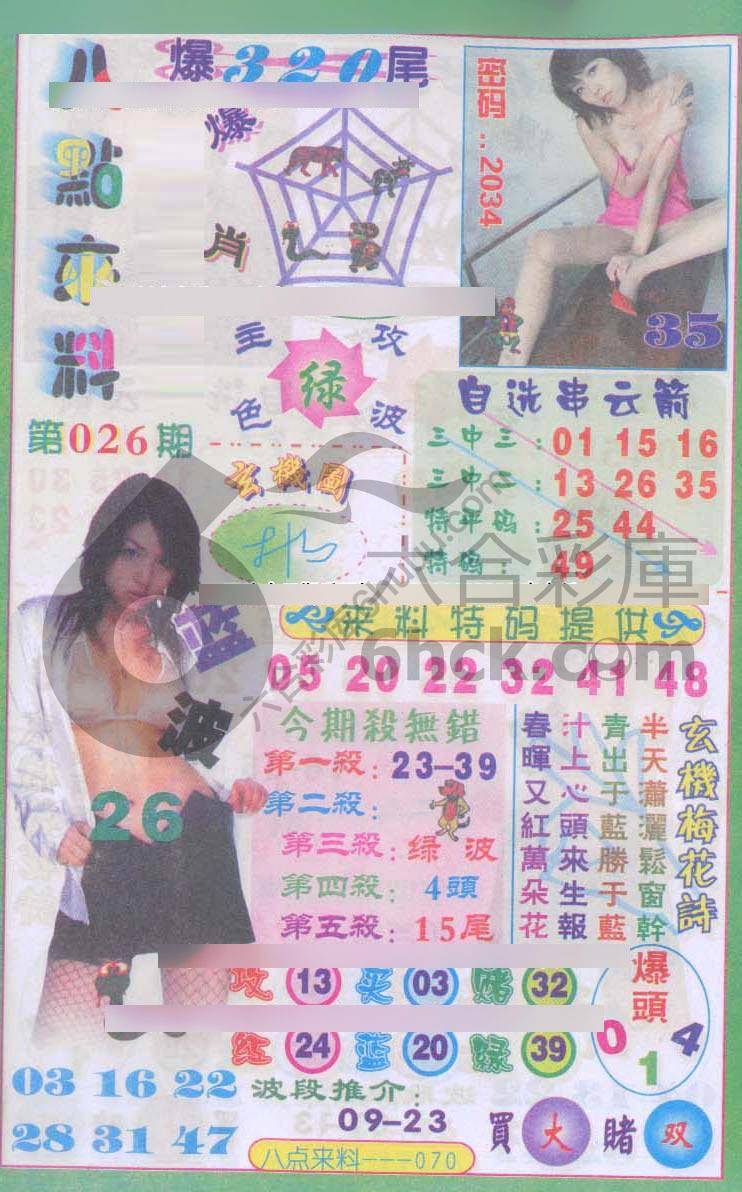 八點來料
爆320尾
爆肖
密码..2034
35
第026期
主攻
绿
色波
玄機圖
自选串云箭
三中三:01 15 16
三中二:13 26 35
特平码:25 44
特码:49
六合彩庫
6hck.com
蓝波
26
来料特码提供
05 20 22 32 41 48
今期殺無錯
第一殺:23-39
第二殺:
第三殺:绿波
第四殺:4頭
第五殺:15尾
玄機梅花詩
半天蕭灑鬆窗幹
青出于藍勝于藍
汁上心頭來生報
春暉又紅萬朵花
攻 13 买 03 赌 32
红 24 蓝 20 绿 39
爆頭
0 1 4
03 16 22
28 31 47
波段推介:
09-23
買大 賭双
八点来料---070